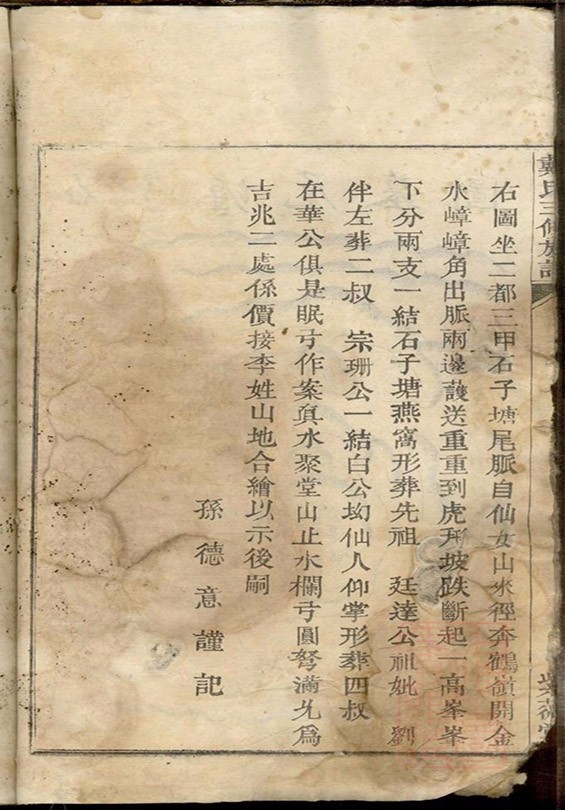 戴氏三修族譜
右圖坐二都三甲石子塘尾脈自仙女山來徑奔鶴嶺開金
水嶂嶂角出脈兩邊護送重重到虎形坡跌斷起一高峯峯
下分兩支一結石子塘燕窩形葬先祖 廷達公祖妣 劉
伴左葬二叔 宗珊公一結白公坳仙人仰掌形葬四叔
在華公俱是眠弓作案真水聚堂山止水欄弓圓弩滿允為
吉兆二處係價接李姓山地合繪以示後嗣
孫德意謹記
紫薇堂